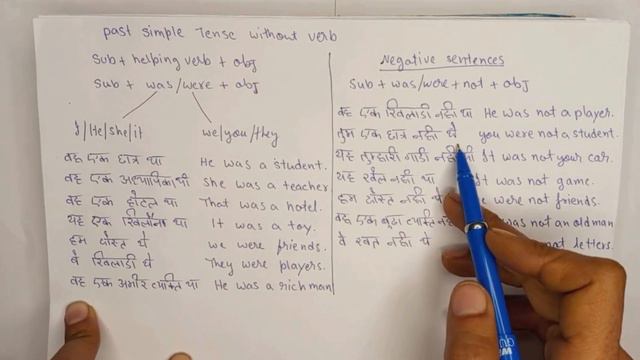 past simple Tense without verb
Sub + helping verb + obj
Sub + was/were + obj
I/He/she/it we/you/they
वह एक छात्र था He was a student.
वह एक अध्यापिका थी she was a teacher
वह एक होटल था That was a hotel.
यह एक खिलौना था It was a toy.
हम दोस्त थे we were friends.
वे खिलाडी थे They were players.
वह एक अमीर व्यक्ति था He was a rich man
Negative sentences
Sub + was/were + not + obj
वह एक खिलाडी नही था He was not a player.
तुम एक छात्र नही थे you were not a student.
यह तुम्हारी गाडी नही थी It was not your car.
यह खेल नही था It was not game.
हम दोस्त नही थे we were not friends.
वह एक बूढा व्यक्ति नही was not an old man
वे खत नही थे not letters.